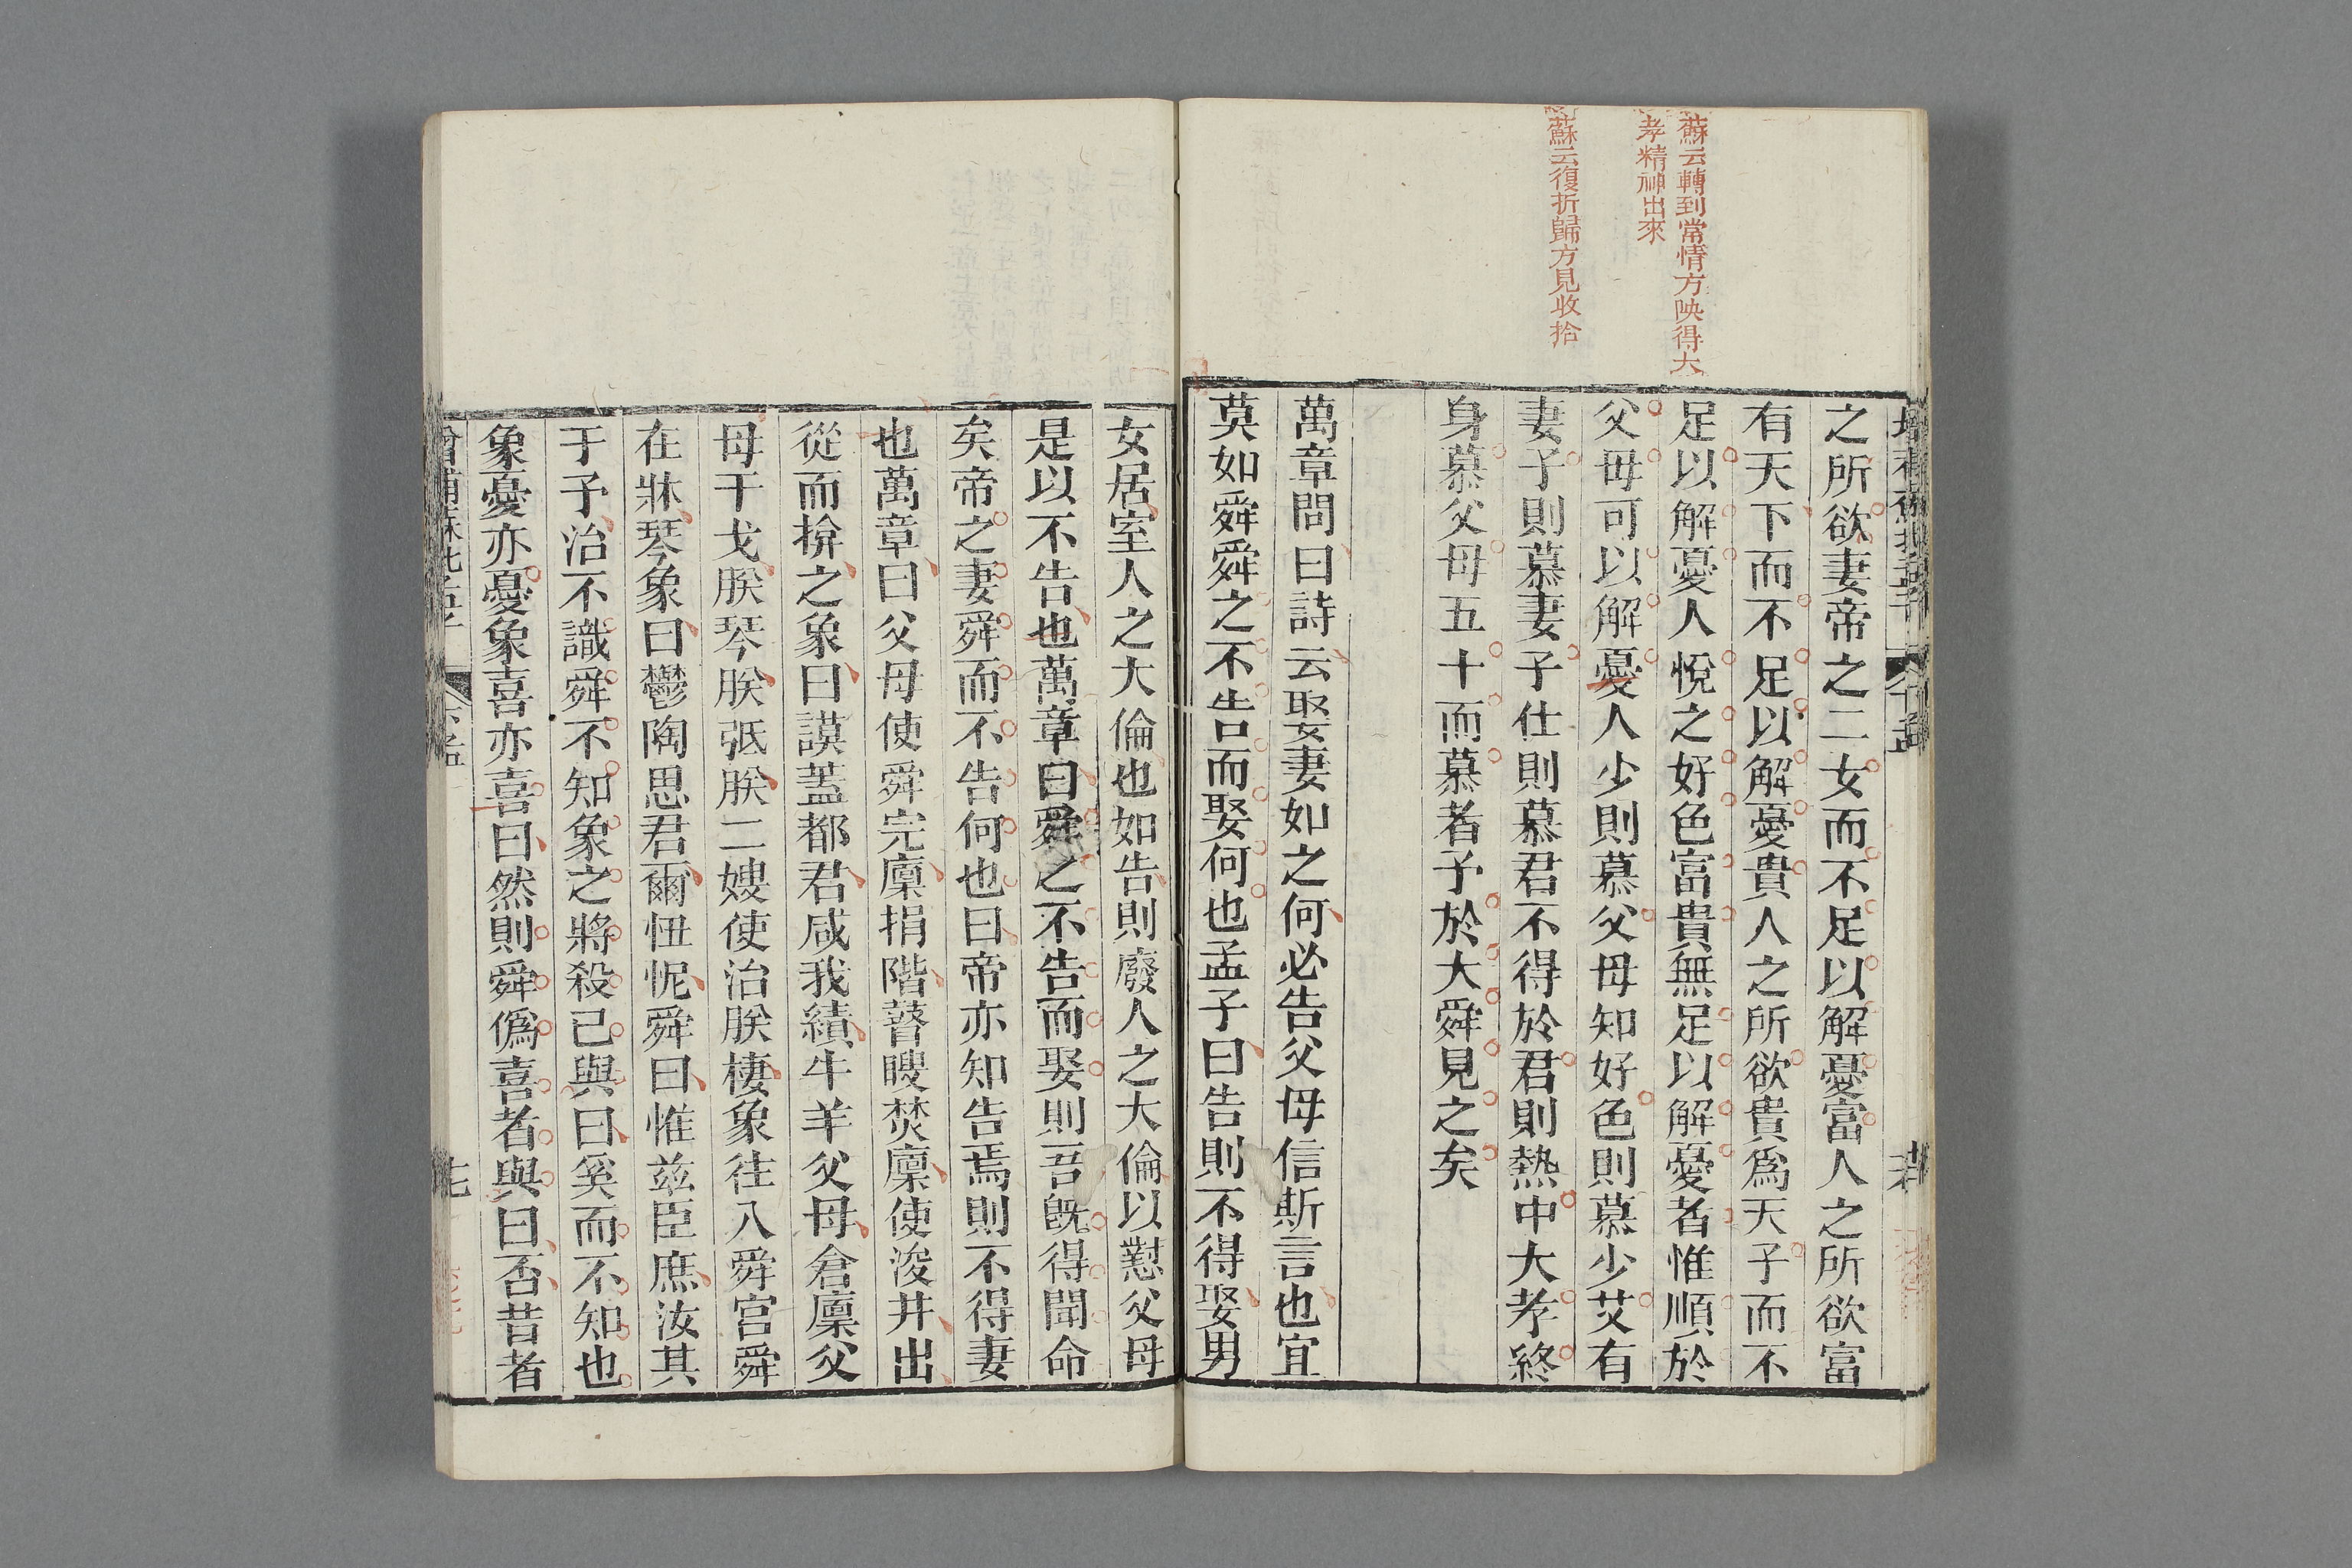 蘇云轉到常情方映得大
孝精神出來
蘇云復折歸方見收拾
之所欲妻帝之二女而不足以解憂富人之所欲富
有天下而不足以解憂貴人之所欲貴爲天子而不
足以解憂人悅之好色富貴無足以解憂者惟順於
父母可以解憂人少則慕父母知好色則慕少艾有
妻子則慕妻子仕則慕君不得於君則熱中大孝終
身慕父母五十而慕者予於大舜見之矣
萬章問曰詩云娶妻如之何必告父母信斯言也宜
莫如舜舜之不告而娶何也孟子曰告則不得娶男
女居室人之大倫也如告則廢人之大倫以懟父母
是以不告也萬章曰舜之不告而娶則吾旣得聞命
矣帝之妻舜而不告何也曰帝亦知告焉則不得妻
也萬章曰父母使舜完廩捐階瞽瞍焚廩使浚井出
從而揜之象曰謨蓋都君咸我績牛羊父母倉廩父
母干戈朕琴朕弤朕二嫂使治朕棲象往入舜宮舜
在牀琴象曰鬱陶思君爾忸怩舜曰惟兹臣庶汝其
于予治不識舜不知象之將殺己與曰奚而不知也
象憂亦憂象喜亦喜曰然則舜僞喜者與曰否昔者